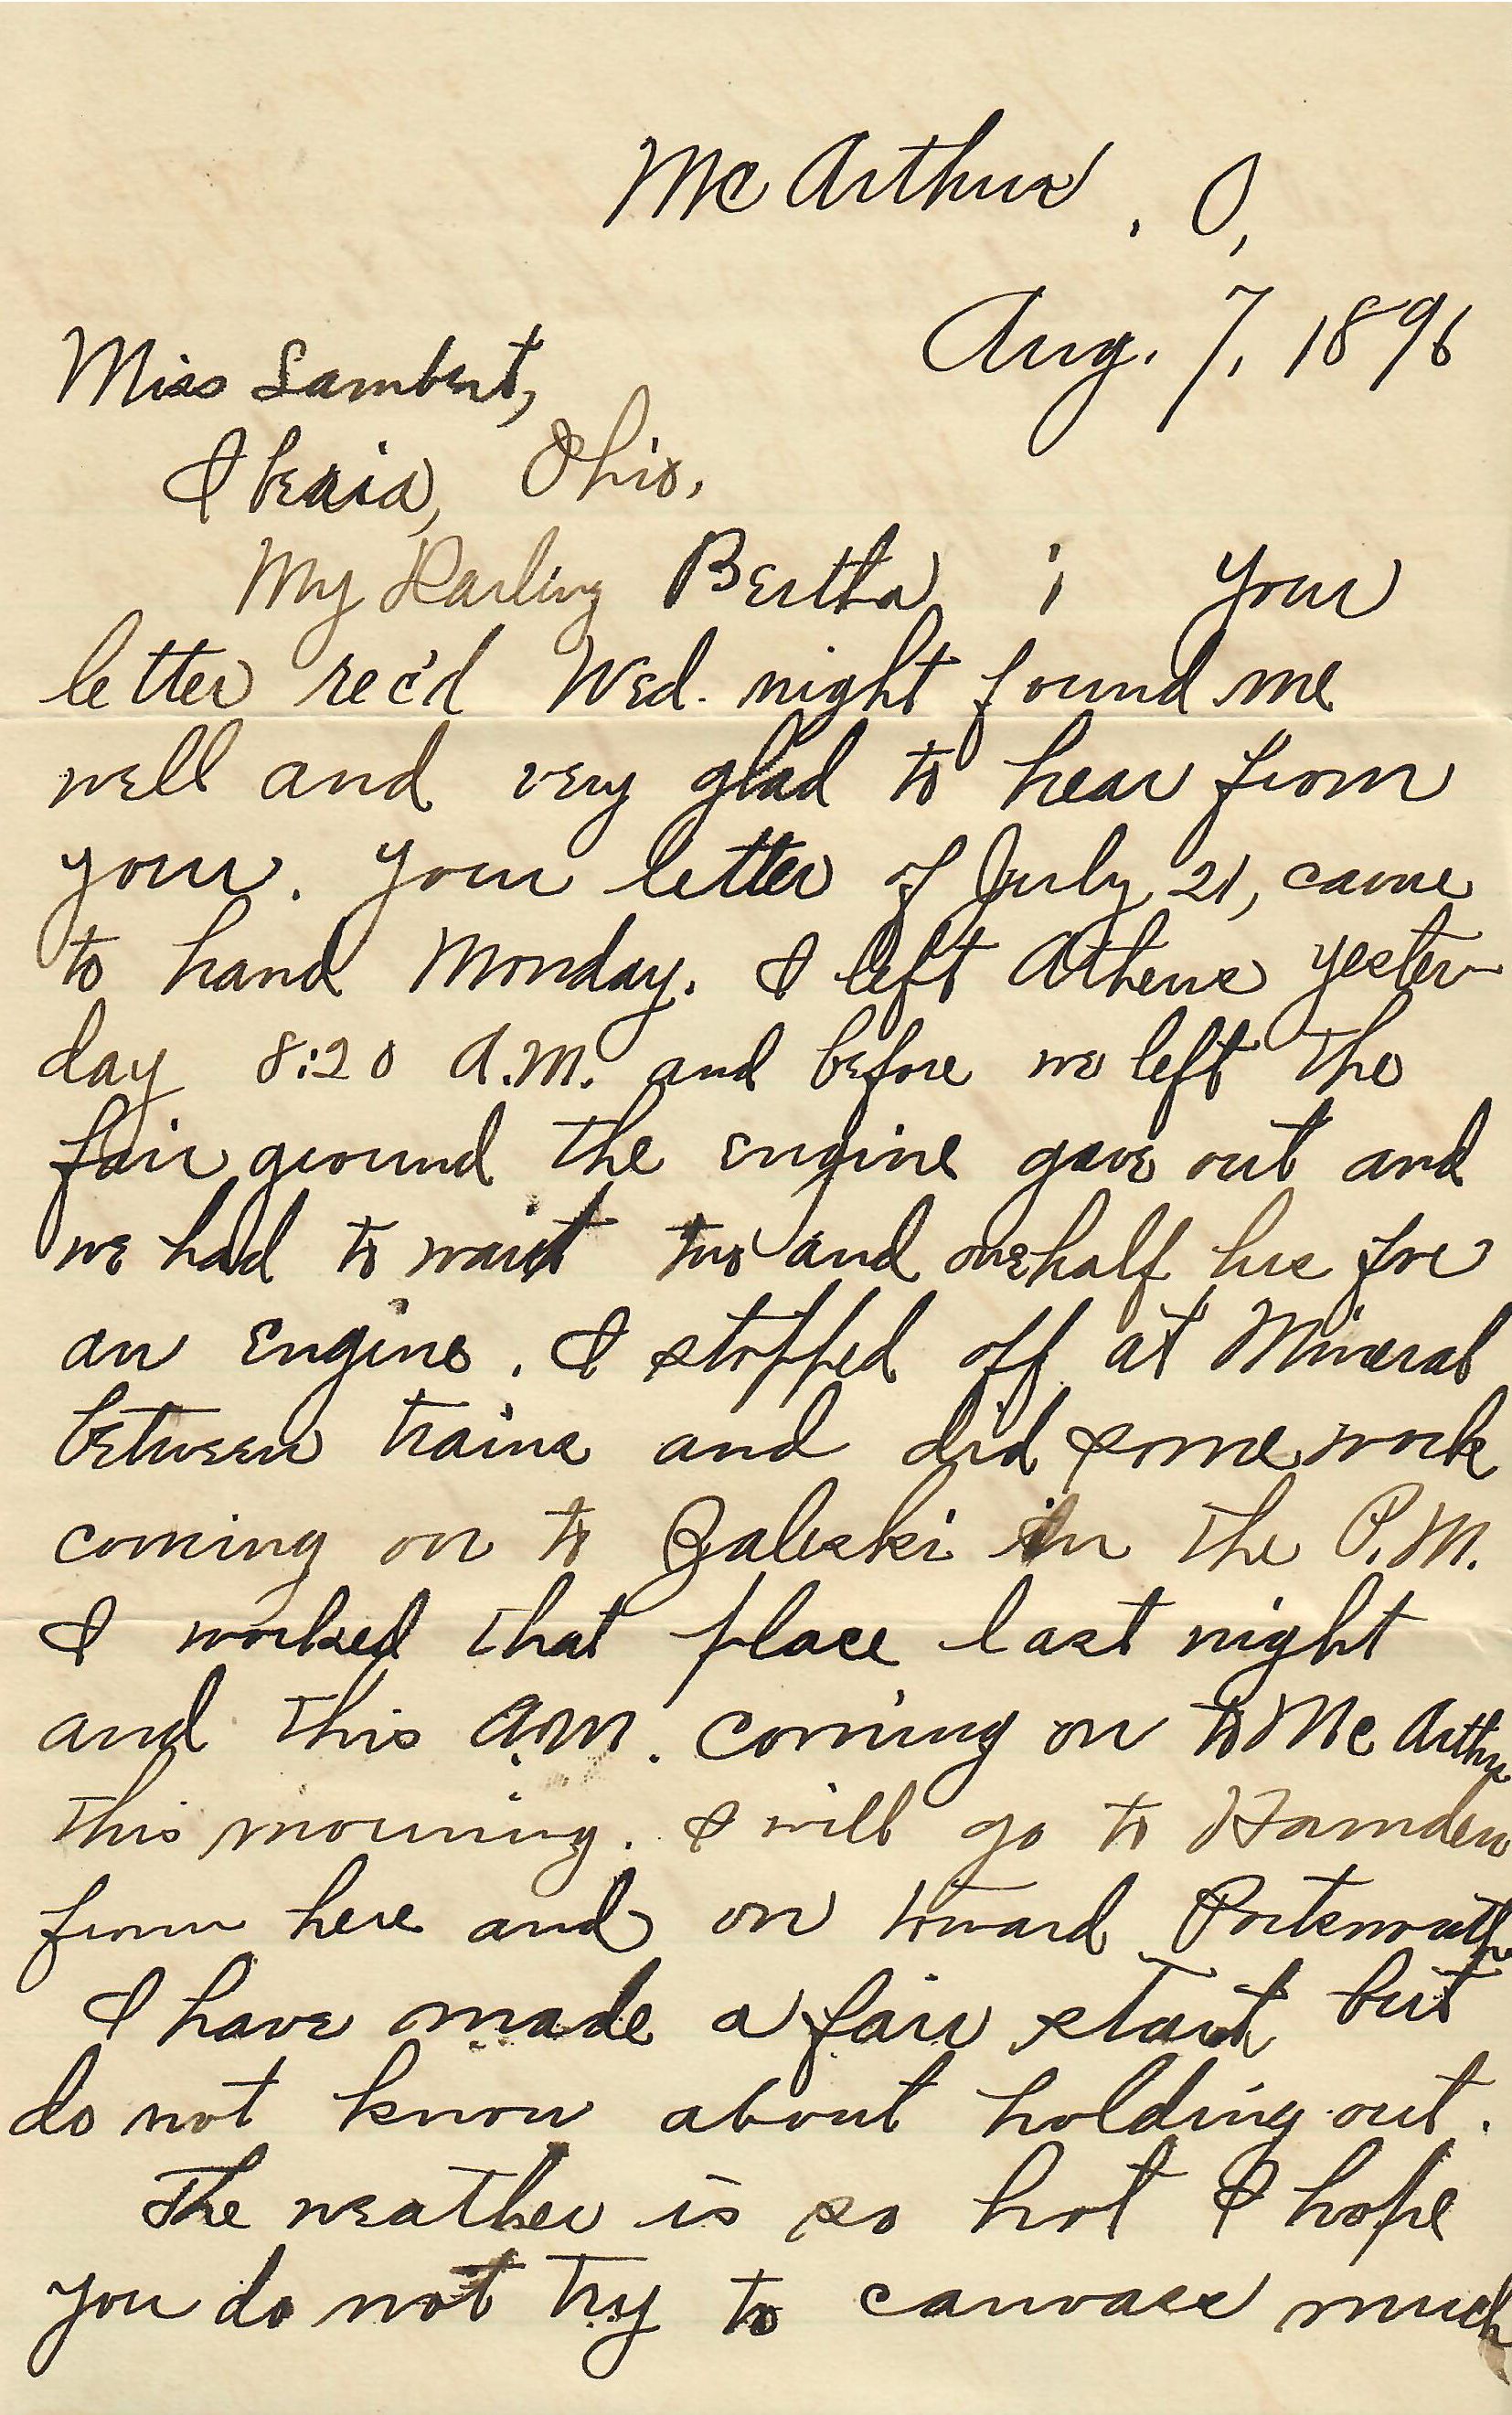 McArthur, O,
Aug. 7, 1896
Miss Lambert,
Iberia, Ohio.
My Darling Bertha; Your
letter rec'd Wed. night found me
well and very glad to hear from
you. Your letter of July 21, came
to hand Monday. I left Athens yester-
day 8:20 A.M. and before we left the
fair ground the engine gave out and
we had to wait two and one half hrs for
an engine. I stopped off at Mineral
between trains and did some work
coming on to Zaleski in the P.M.
I worked that place last night
and this A.M. coming on to McArthur
this morning. I will go to Hamden
from here and on toward Portsmouth
I have made a fair start but
do not know about holding out.
The weather is so hot I hope
you do not try to canvass much